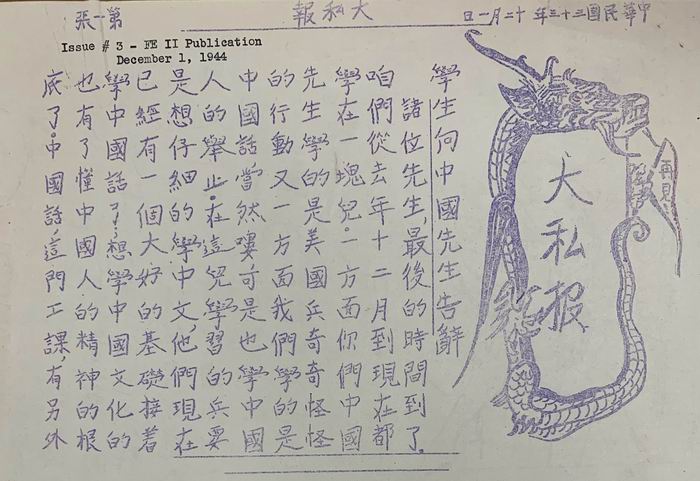 中華民國三十三年 十二月一日
大私報
第一張
Issue # 3 - FE II Publication
December 1, 1944
大私报
再見
學生向中國先生告辭
諸位先生,最後的時間到了
咱們從去年十二月到現在都
學在一塊兒。一方面你們中國
先生學的是美國兵奇奇怪怪
的行動又一方面我們學的是
中國話當然嘍可是也學中國
人的舉止。在這兒學習的兵要
是想仔細的學中文,他們現在
已經有一個大好的基礎接着
學中國話了,想學中國文化的
也有了懂中國人的精神的根
底了。中國話,這門工課,有另外